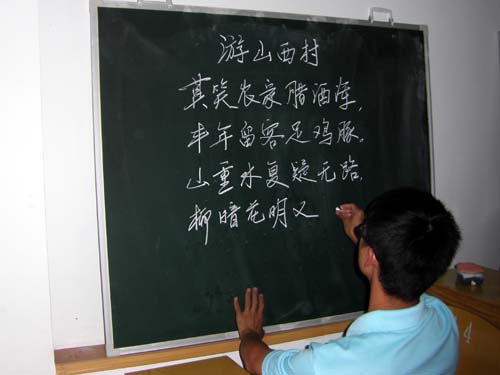 游山西村
莫笑农家腊酒浑，
丰年留客足鸡豚。
山重水复疑无路，
柳暗花明又
4